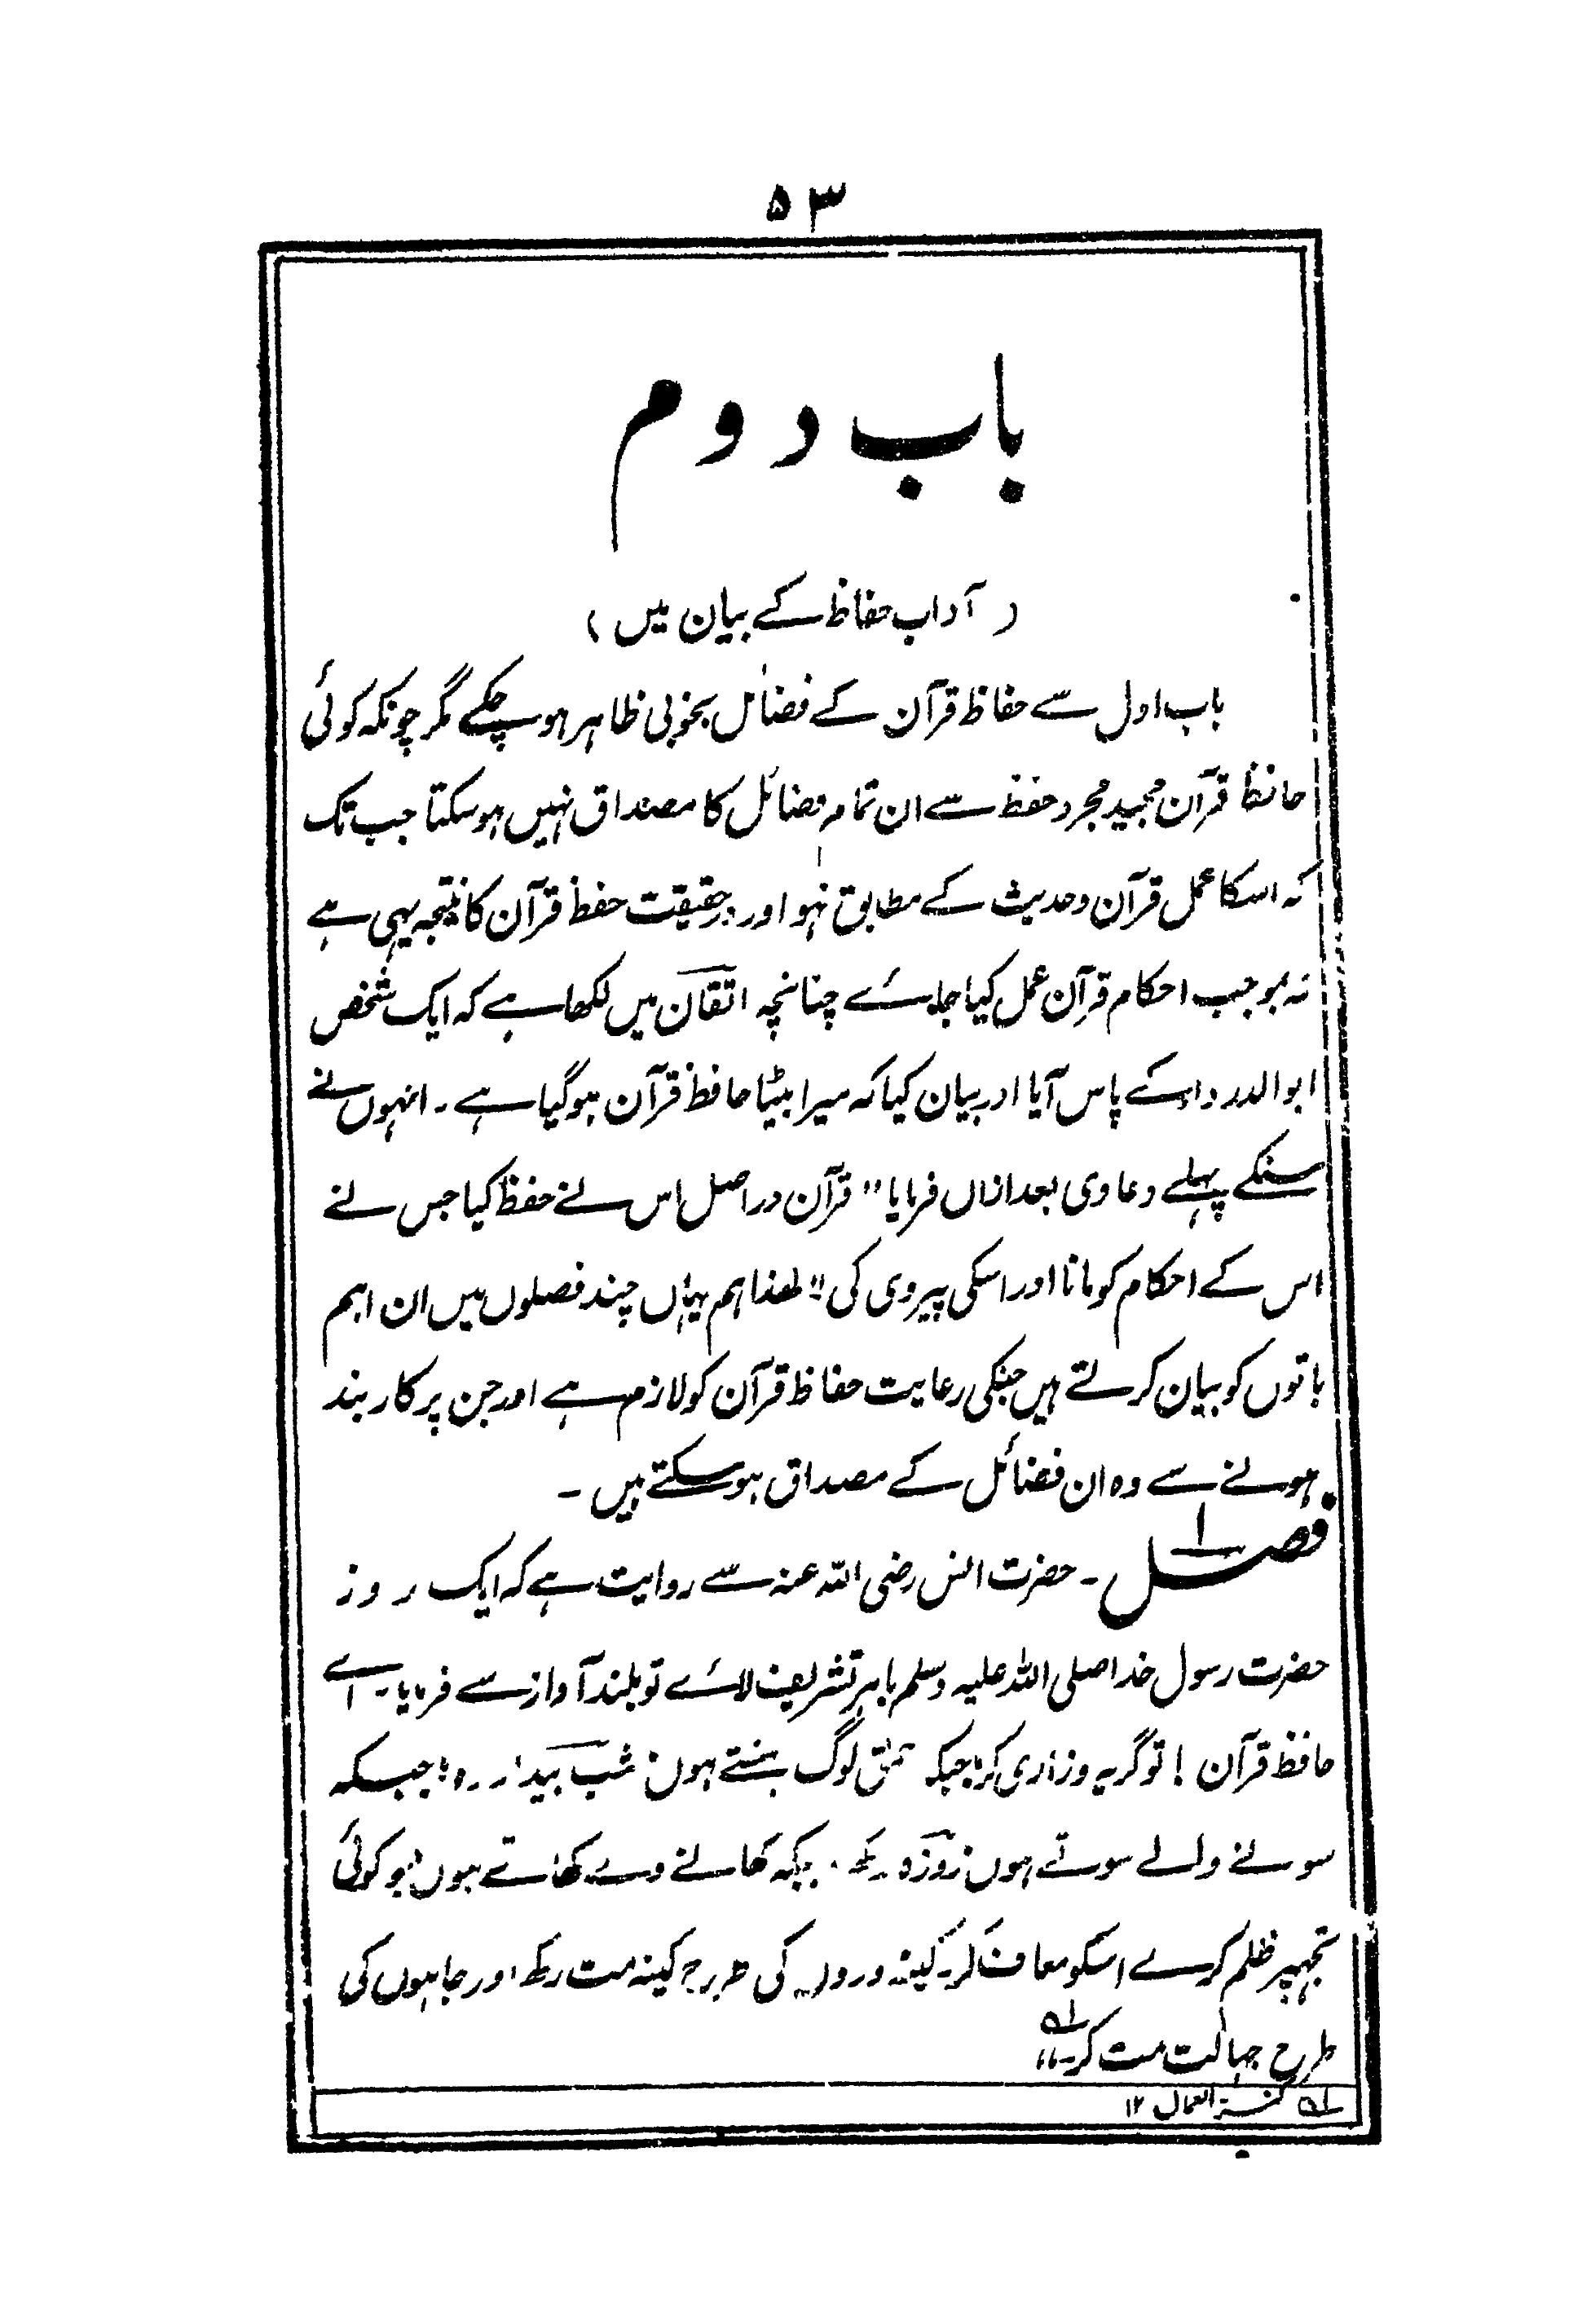 ۵۳
باب دوم
( آداب حفاظ کے بیان میں )
باب اول سے حفاظ قرآن کے فضائل بخوبی ظاہر ہو چکے مگر چونکہ کوئی
حافظ قرآن مجید مجرد حفظ سے ان تمام فضائل کا مصداق نہیں ہو سکتا جب تک
کہ اسکا عمل قرآن و حدیث کے مطابق نہو اور درحقیقت حفظ قرآن کا نتیجہ یہی ہے
کہ بموجب احکام قرآن عمل کیا جائے چنانچہ اتقان میں لکھا ہے کہ ایک شخص
ابو الدرداء کے پاس آیا اور بیان کیا کہ میرا بیٹا حافظ قرآن ہو گیا ہے ۔ انہوں نے
سنکے پہلے دعا دی بعد ازاں فرمایا " قرآن دراصل اس نے حفظ کیا جس نے
اس کے احکام کو مانا اور اسکی پیروی کی " لھذا ہم یہاں چند فصلوں میں ان اہم
باتوں کو بیان کرتے ہیں جنکی رعایت حفاظ قرآن کو لازم ہے اور جن پر کاربند
ہونے سے وہ ان فضائل کے مصداق ہو سکتے ہیں ۔
فصل ۱ ۔ حضرت انس رضی اللہ عنہ سے روایت ہے کہ ایک روز
حضرت رسول خدا صلی اللہ علیہ وسلم باہر تشریف لائے تو بلند آواز سے فرمایا ۔ اے
حافظ قرآن ! تو گریہ و زاری کر جبکہ لوگ ہنستے ہوں شب بیدار رہ جبکہ
سونے والے سوتے ہوں روزہ رکھ جبکہ کھانے والے کھاتے ہوں جو کوئی
تجھپر ظلم کرے اسکو معاف کر ۔ کینہ وروں کی طرح کینہ مت رکھ اور جاہلوں کی
طرح جہالت مت کر ۔ " لہ
لہ کنز العمال ۱۲